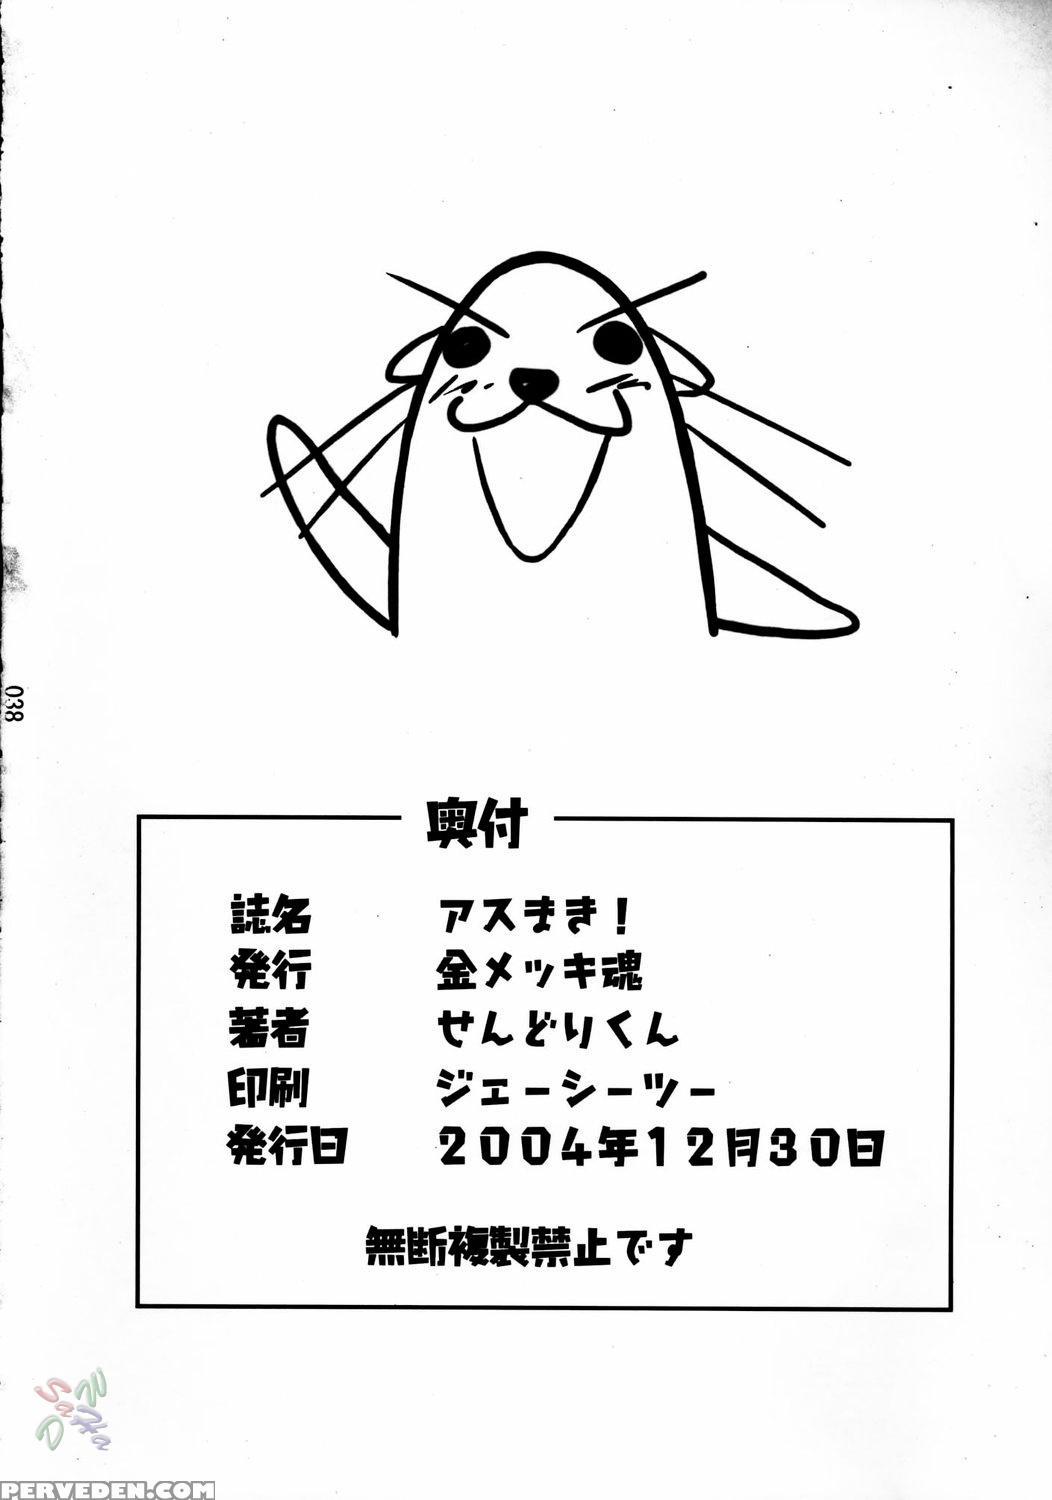 038
奥付
誌名 アスまき！
発行 金メッキ魂
著者 せんどりくん
印刷 ジェーシーツー
発行日 2004年12月30日
無断複製禁止です
PERVEDEN.COM